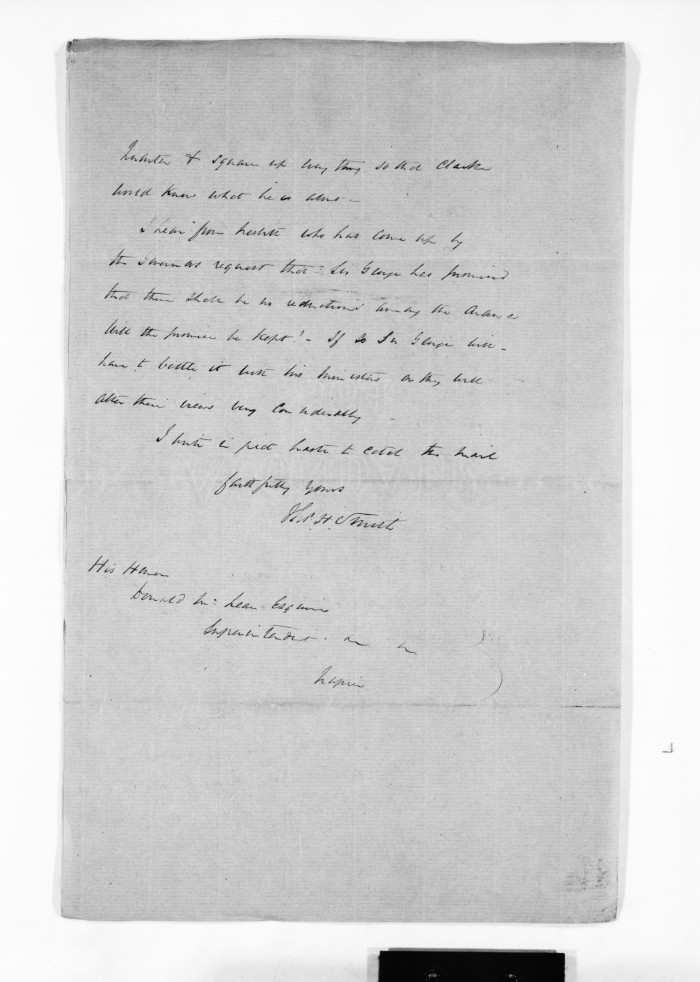 Quarter & square up every thing so that Clarke
would know what he is about –
I hear from Nesbitt who has come up by
the Governors request that Sir George has promised
that there shall be no reductions among the Arawa
Will the promise be kept! – If so Sir George will
have to battle it with his Ministers or they will
alter their views very considerably –
I write in great haste to catch the mail
faithfully yours
H. Smith
His Honor
Donald Mc Lean Esquire
Superintendent
Napier